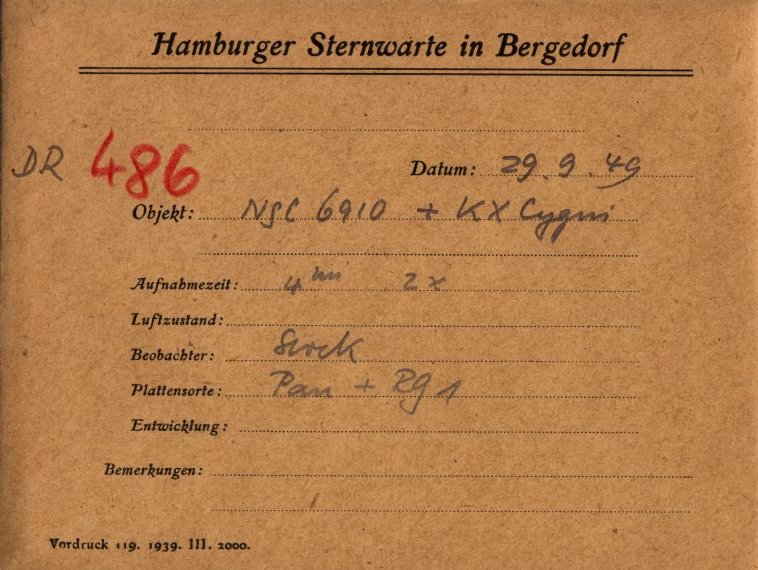 Hamburger Sternwarte in Bergedorf
DR 486
Datum: 29.9.49
Objekt: NGC 6910 + KX Cygni
Aufnahmezeit: 4 min 2x
Luftzustand:
Beobachter:
Plattensorte: Pan + RG 1
Entwicklung:
Bemerkungen:
Vordruck 119. 1939. III. 2000.